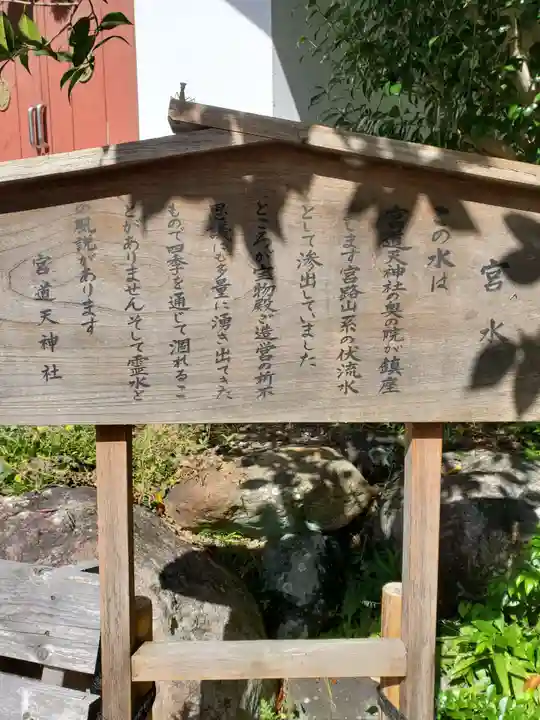 宮水
この水は
宮道天神社の奥の院が鎮座
します宮路山系の伏流水
として滲出していました
ところが宝物殿ご造営の折不
思議にも多量に湧き出てきた
もので四季を通じて涸れるこ
とがありませんそして霊水と
の風説があります
宮道天神社